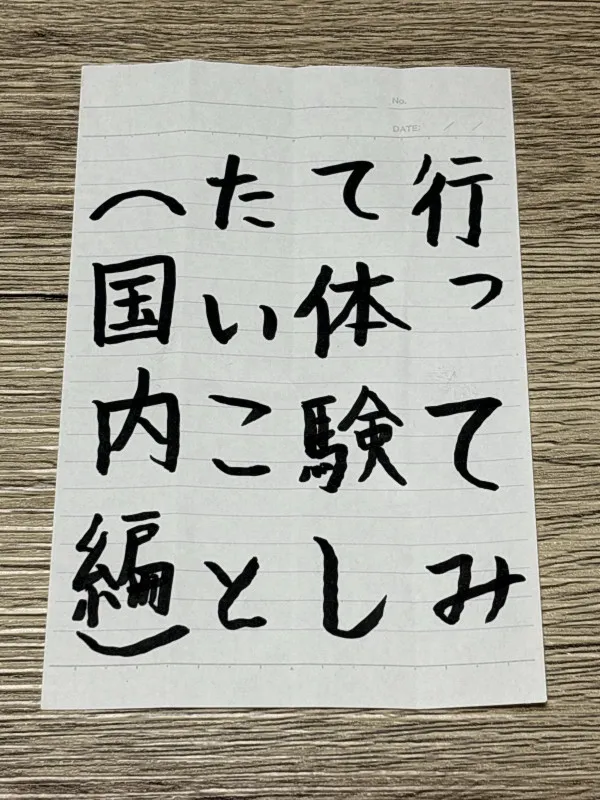 No.
DATE: / /
行ってみ
て体験し
たいこと
(国内編)